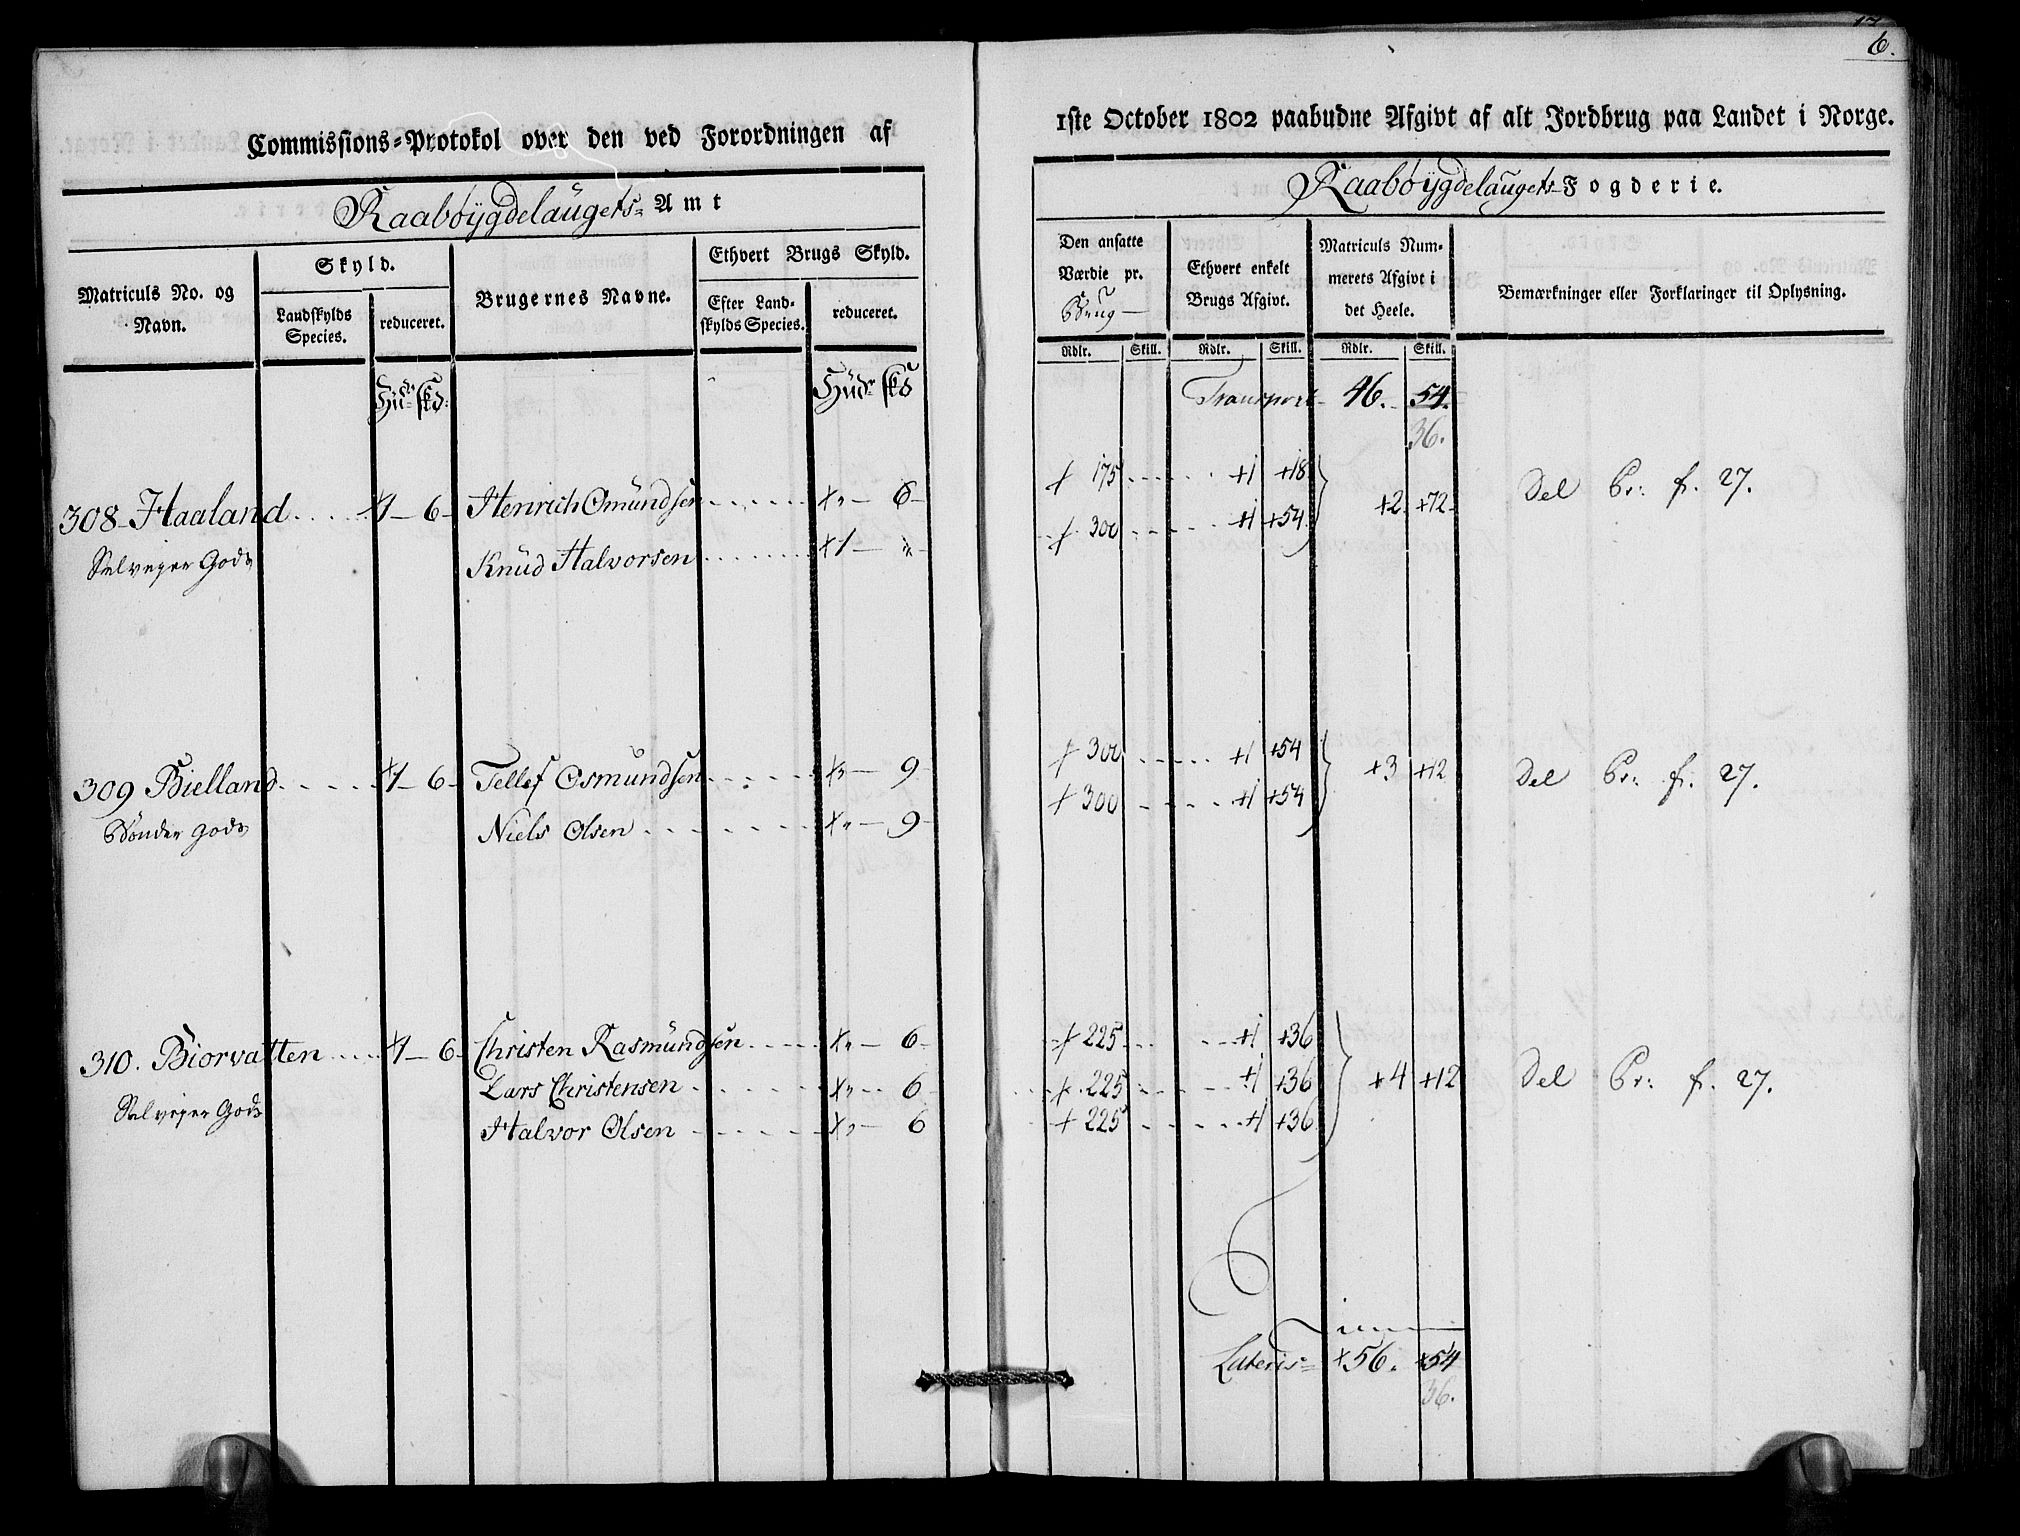 6.
Commissions-Protokol over den ved Forordningen af
1ste October 1802 paabudne Afgivt af alt Jordbrug paa Landet i Norge.
Raabøygdelaugets- Amt
Raabøygdelaugets- Fogderie.
Matriculs No. og Navn.
Skyld.
Landskylds Species.
reduceret.
Brugernes Navne.
Ethvert Brugs Skyld.
Efter Landskylds Species.
reduceret.
Den ansatte Værdie pr. Brug
Ethvert enkelt Brugs Afgivt.
Matriculs Nummerets Afgivt i det Heele.
Bemærkninger eller Forklaringer til Oplysning.
Rdlr. Skill. Rdlr. Skill. Rdlr. Skill.
Hudr skd: Hudr skd
Transport 46. 54.
36.
308- Haaland 1 - 6 - Henrich Omundsen " - 6 - 175 1 18 2 72 Del Pr: fr. 27.
Selveyer Gods Knud Halvorsen 1 - " - 300 1 54
309 Bielland 1 - 6 - Tellef Osmundsen " - 9 - 300 1 54 3 12 Del Pr: fr. 27.
Bønder gods Niels Olsen " - 9 - 300 1 54
310. Biorvatten 1 - 6 - Christen Rasmundsen " - 6 - 225 1 36 4 12 Del Pr: fr. 27.
Lars Christensen " - 6 - 225 1 36
Selveyer Gods Halvor Olsen " - 6 225 1 36
Lateris 56. 54
36.